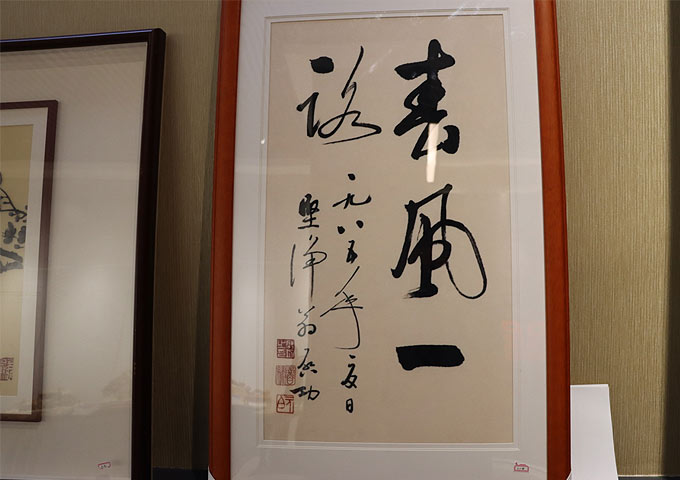 春风一
路
一九八五年夏日
坚净翁启功